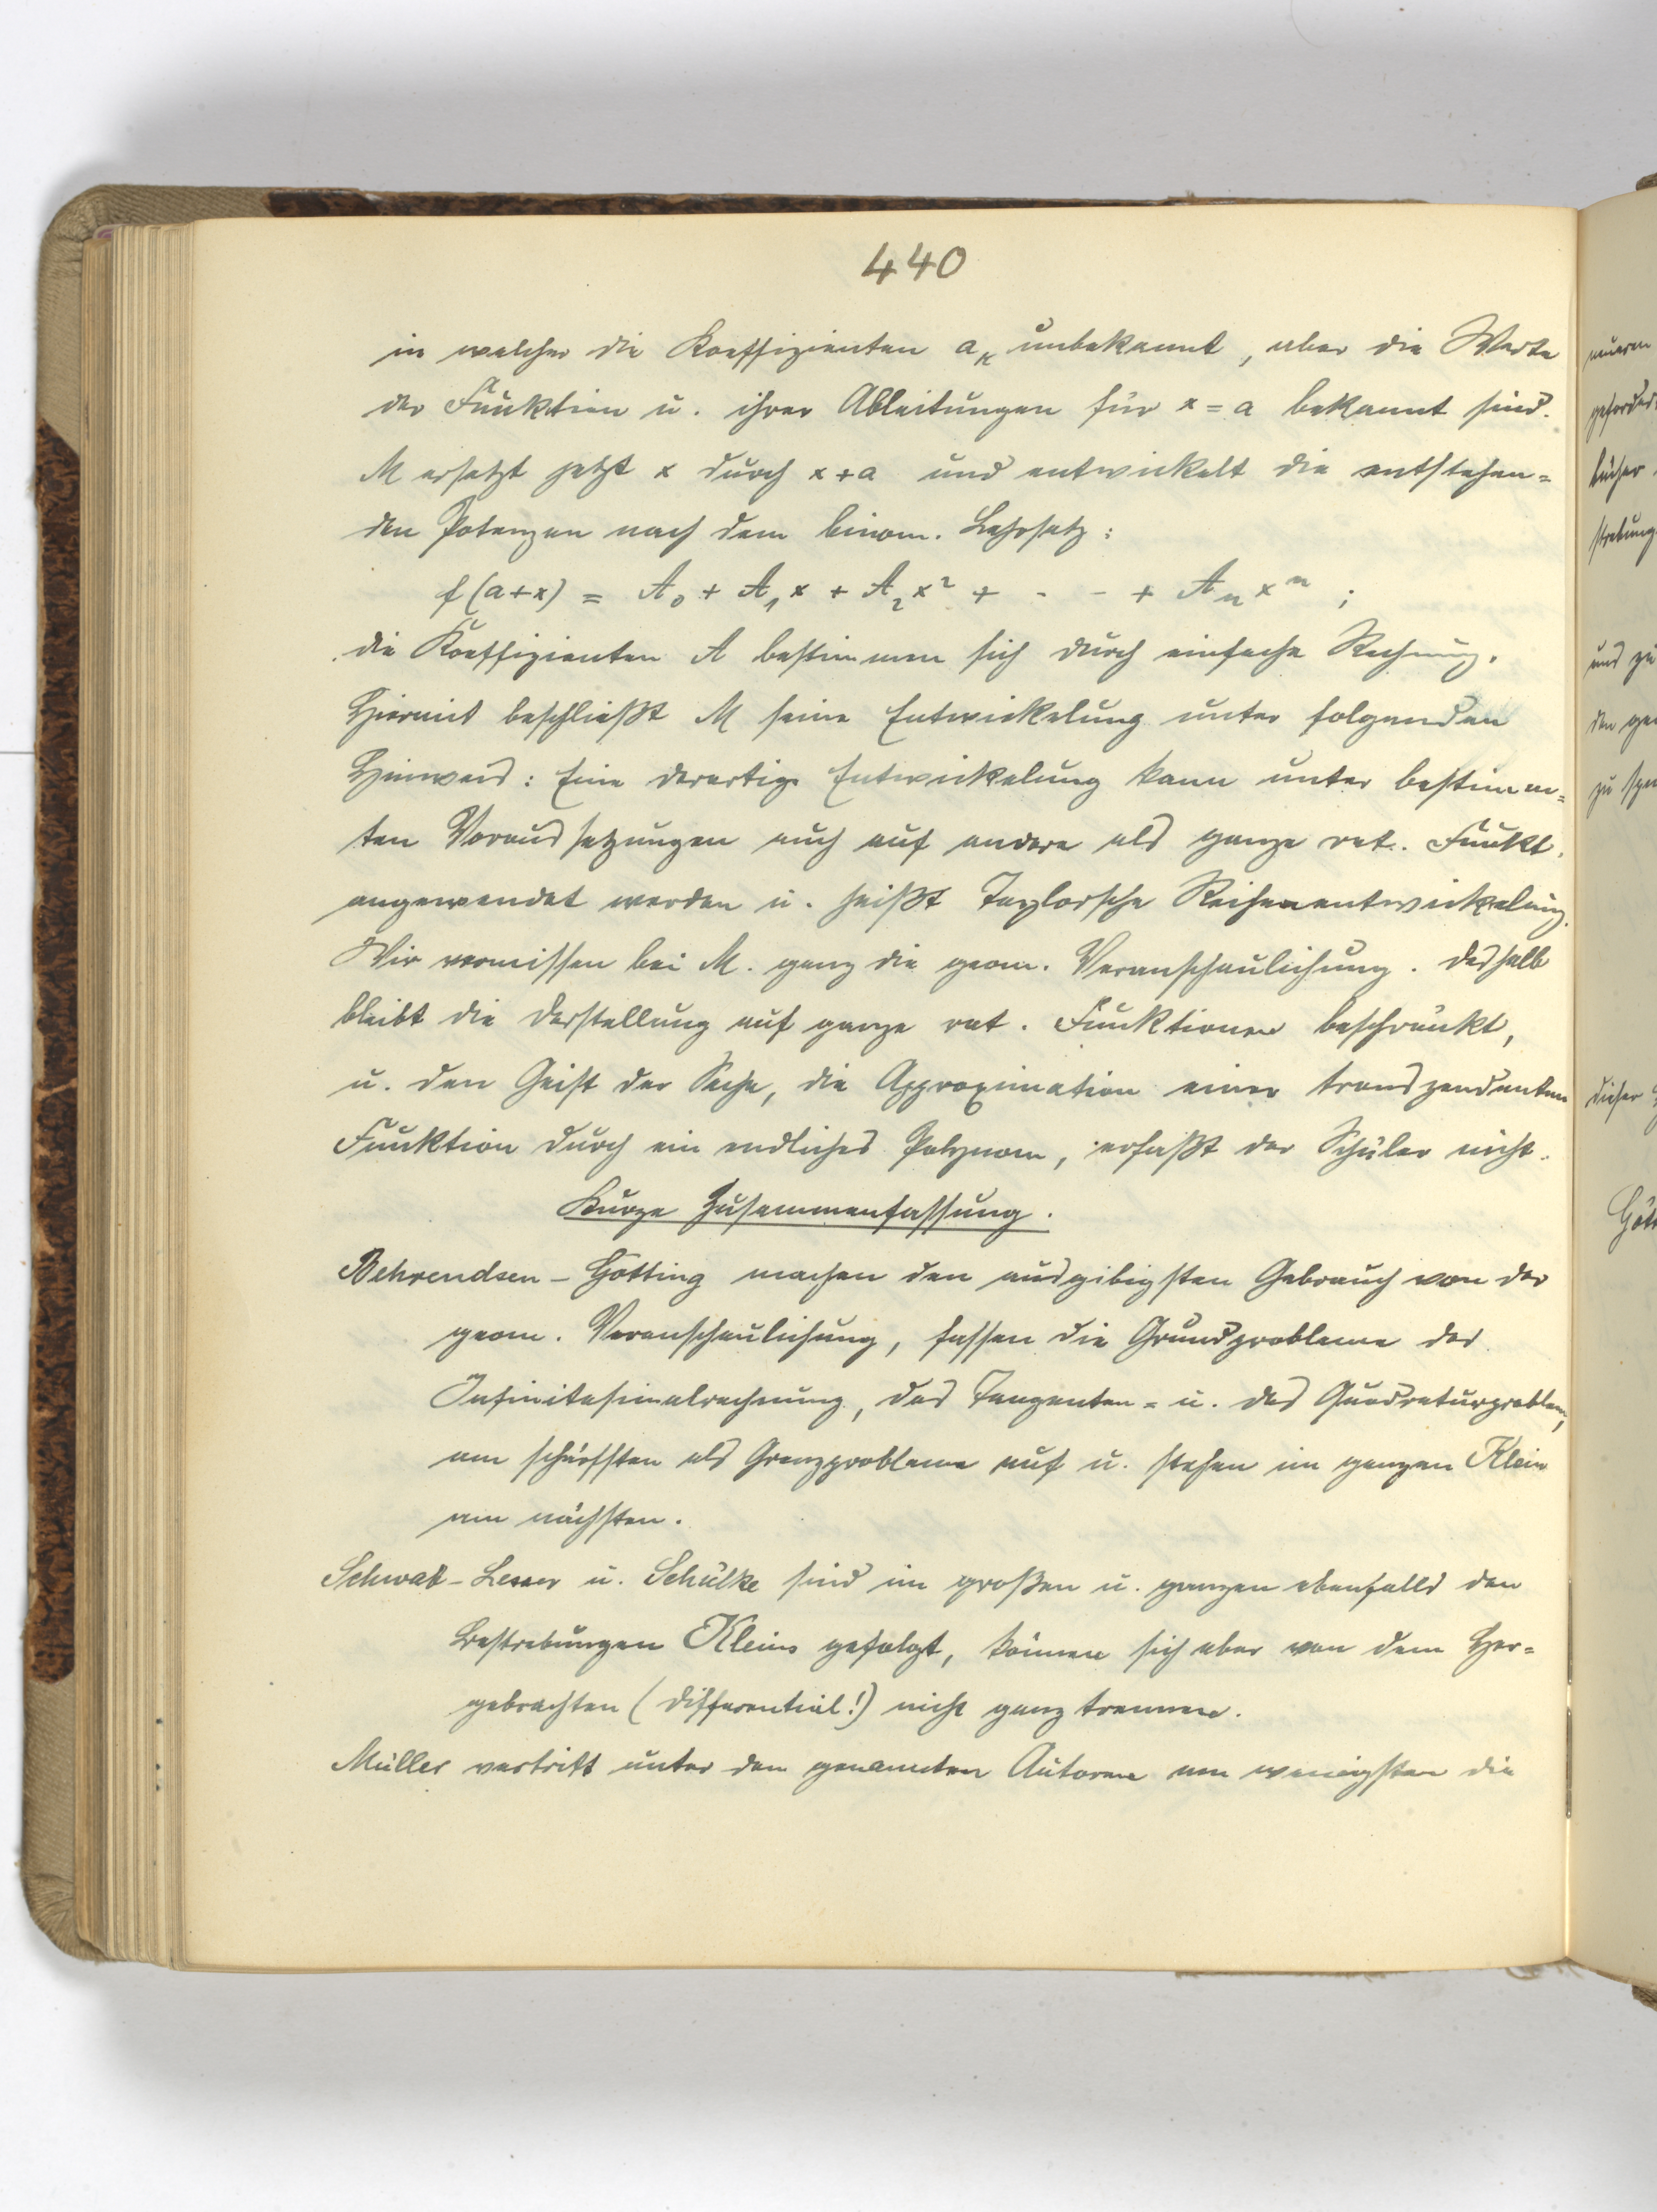 440
in welcher die Koeffizienten aₖ unbekannt, aber die Werte
der Funktion u. ihrer Ableitungen für x = a bekannt sind.
M ersetzt jetzt x durch x + a und entwickelt die entstehen=
den Potenzen nach dem binom. Lehrsatz:
f(a+x) = A₀ + A₁x + A₂x² + - - + Aₙxⁿ ;
die Koeffizienten A bestimmen sich durch einfache Rechnung.
Hiermit beschließt M seine Entwickelung unter folgenden
Hinweis: Eine derartige Entwickelung kann unter bestimm=
ten Voraussetzungen auch auf andere als ganze rat. Funkt.
angewendet werden u. heißt Taylorsche Reihenentwickelung.
Wir vermissen bei M. ganz die geom. Veranschaulichung. Deshalb
bleibt die Darstellung auf ganze rat. Funktionen beschränkt,
u. den Geist der Sache, die Approximation einer transzendenten
Funktion durch ein endliches Polynom, erfaßt der Schüler nicht.
Kurze Zusammenfassung.
Behrendsen - Götting machen den ausgibigsten Gebrauch von der
geom. Veranschaulichung, fassen die Grundprobleme der
Infinitesimalrechnung, das Tangenten= u. das Quadraturproblem,
am schärfsten als Grenzprobleme auf u. stehen im ganzen Klein
am nächsten.
Schwab - Lesser u. Schülke sind im großen u. ganzen ebenfalls den
Bestrebungen Kleins gefolgt, können sich aber von dem Her=
gebrachten (Differential!) nicht ganz trennen.
Müller vertritt unter den genannten Autoren am wenigsten die